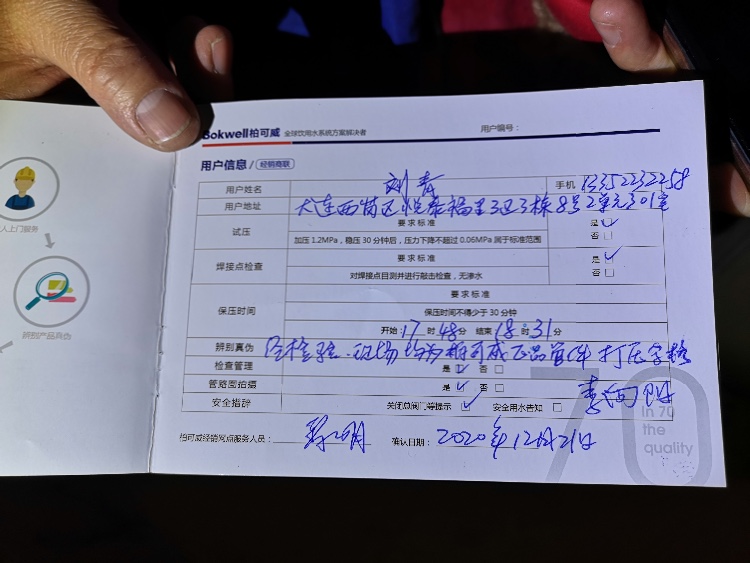 人上门服务
辨别产品真伪
Bokwell柏可威 全球饮用水系统方案解决者 用户编号：
用户信息/ 经销商联
用户姓名 刘青 手机 13352232258
用户地址 大连西岗区悦泰福里3区3栋8号2单元301室
试压 要求标准 是 否
加压 1.2MPa，稳压 30 分钟后，压力下降不超过 0.06MPa 属于标准范围
焊接点检查 要求标准 是 否
对焊接点目测并进行敲击检查，无渗水
保压时间 要求标准
保压时间不得少于 30 分钟
开始：17 时 48 分 结束 18 时 31 分
辨别真伪 经检验.现场均为柏可威正品管件 打压合格
检查管理 是 否
管路图拍摄 是 否
安全措施 关闭总阀门等提示 安全用水告知
In 70
the
quality
70
柏可威经销网点服务人员： 确认日期：2020年12月21日